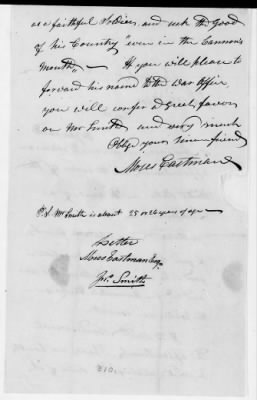 as a faithful Soldier, and seek the Good
of his Country "even in the Cannon's
Mouth" — If you will please to
forward his name to the War Office
you will confer a Great favor
on Mr Smith and very much
Oblige yours sincere friend
Moses Eastman
P.S. Mr Smith is about 25 or 26 years of age —
Letter
Moses Eastman Esq.
Jno. Smith